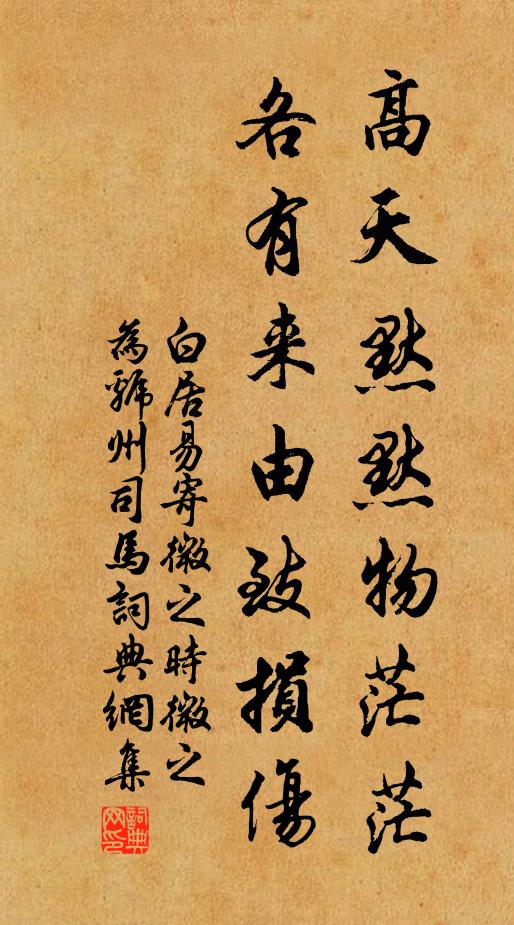 高天默默物茫茫
各有来由致損傷
白居易寄微之時微之
為虢州司馬詞典網集
詞典网印